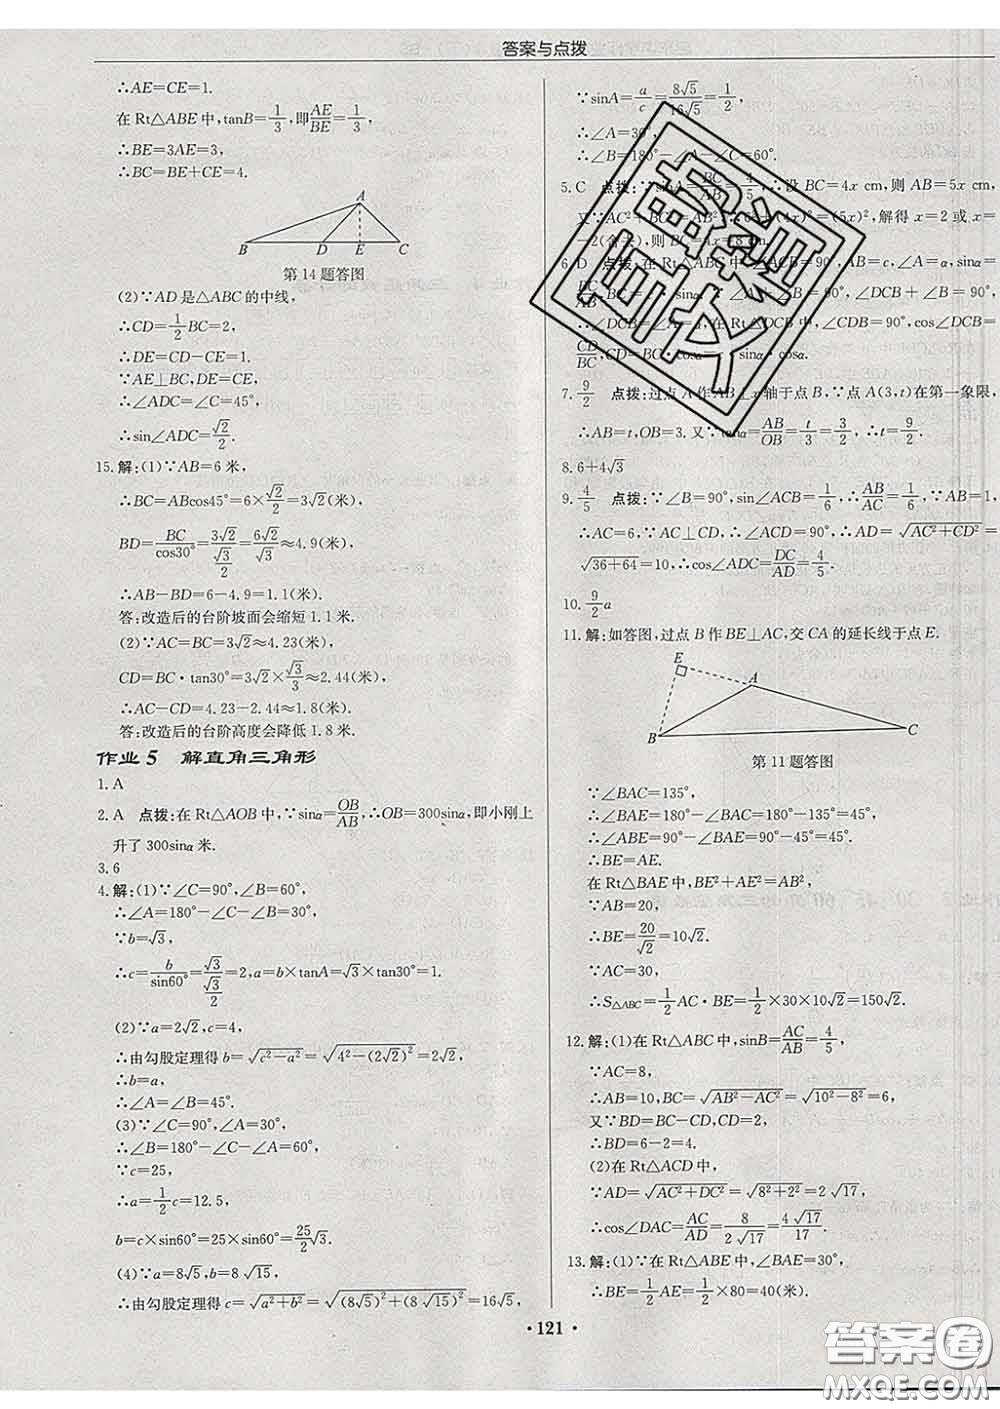 答案与点拨
∴AE=CE=1.
在 Rt△ABE 中,tanB=1/3,即AE/BE=1/3,
∴BE=3AE=3,
∴BC=BE+CE=4.
A
B D E C
第14题答图
(2)∵AD 是△ABC 的中线,
∴CD=1/2BC=2,
∴DE=CD-CE=1.
∵AE⊥BC,DE=CE,
∴∠ADC=∠C=45°,
∴sin∠ADC=√2/2.
15.解:(1)∵AB=6 米,
∴BC=ABcos45°=6×√2/2=3√2(米),
BD=BC/cos30°=3√2/(√3/2)=6√2/√3≈4.9(米),
∴AB-BD=6-4.9=1.1(米).
答:改造后的台阶坡面会缩短 1.1 米.
(2)∵AC=BC=3√2≈4.23(米),
CD=BC·tan30°=3√2×√3/3≈2.44(米),
∴AC-CD=4.23-2.44≈1.8(米).
答:改造后的台阶高度会降低 1.8 米.
作业 5 解直角三角形
1.A
2.A 点拨:在 Rt△AOB 中,∵sinα=OB/AB,∴OB=300sinα,即小刚上
升了 300sinα 米.
3.6
4.解:(1)∵∠C=90°,∠B=60°,
∴∠A=180°-∠C-∠B=30°,
∵b=√3,
∴c=b/sin60°=√3/(√3/2)=2,a=b×tanA=√3×tan30°=1.
(2)∵a=2√2,c=4,
∴由勾股定理得 b=√(c²-a²)=√(4²-(2√2)²)=2√2,
∴b=a,
∴∠A=∠B=45°.
(3)∵∠C=90°,∠A=30°,
∴∠B=180°-∠C-∠A=60°,
∵c=25,
∴a=1/2c=12.5,
b=c×sin60°=25×sin60°=25/2√3.
(4)∵a=8√5,b=8√15,
∴由勾股定理得 c=√(a²+b²)=√((8√5)²+(8√15)²)=16√5,
∵sinA=a/c=8√5/16√5=1/2,
∴∠A=30°,
∴∠B=180°-∠A-∠C=60°.
5.C 点拨:∵sinA=BC/AB=4/5,∴设 BC=4x cm,则 AB=5x cm,
又∵AC²+BC²=AB²,∴6²+(4x)²=(5x)²,解得 x=2 或 x=
-2(舍去),则 BC=4x=8 cm.
6.D 点拨:在 Rt△ABC 中,∠ACB=90°,AB=c,∠A=α,sinα=
∠DCB+∠B=90°,
∴∠DCB=∠A=α,在 Rt△DCB 中,∠CDB=90°,cos∠DCB=
CD/BC,
7.9/2 点拨:过点 A 作 AB⊥x 轴于点 B,∵点 A(3,t)在第一象限,
∴AB=t,OB=3.又∵tanα=AB/OB=t/3=3/2,∴t=9/2.
8.6+4√3
9.4/5 点拨:∵∠B=90°,sin∠ACB=1/6,∴AB/AC=1/6,∵AB=1,
∴AC=6,∵AC⊥CD,∴∠ACD=90°,∴AD=√(AC²+CD²)=
√(36+64)=10,∴cos∠ADC=DC/AD=4/5.
10.9/2a
11.解:如答图,过点 B 作 BE⊥AC,交 CA 的延长线于点 E.
E
A
B C
第11题答图
∵∠BAC=135°,
∴∠BAE=180°-∠BAC=180°-135°=45°,
∴∠ABE=90°-∠BAE=90°-45°=45°,
∴BE=AE.
在 Rt△BAE 中,BE²+AE²=AB²,
∵AB=20,
∴BE=20/√2=10√2.
∵AC=30,
∴S△ABC=1/2AC·BE=1/2×30×10√2=150√2.
12.解:(1)在 Rt△ABC 中,sinB=AC/AB=4/5,
∵AC=8,
∴AB=10,BC=√(AB²-AC²)=√(10²-8²)=6,
又∵BD=BC-CD,CD=2,
∴BD=6-2=4.
(2)在 Rt△ACD 中,
∵AD=√(AC²+DC²)=√(8²+2²)=2√17,
∴cos∠DAC=AC/AD=8/2√17=4√17/17.
13.解:(1)∵在 Rt△ABE 中,∠BAE=30°,
∴BE=1/2AE=1/2×80=40(米).
·121·
答案圈
MXQE.COM